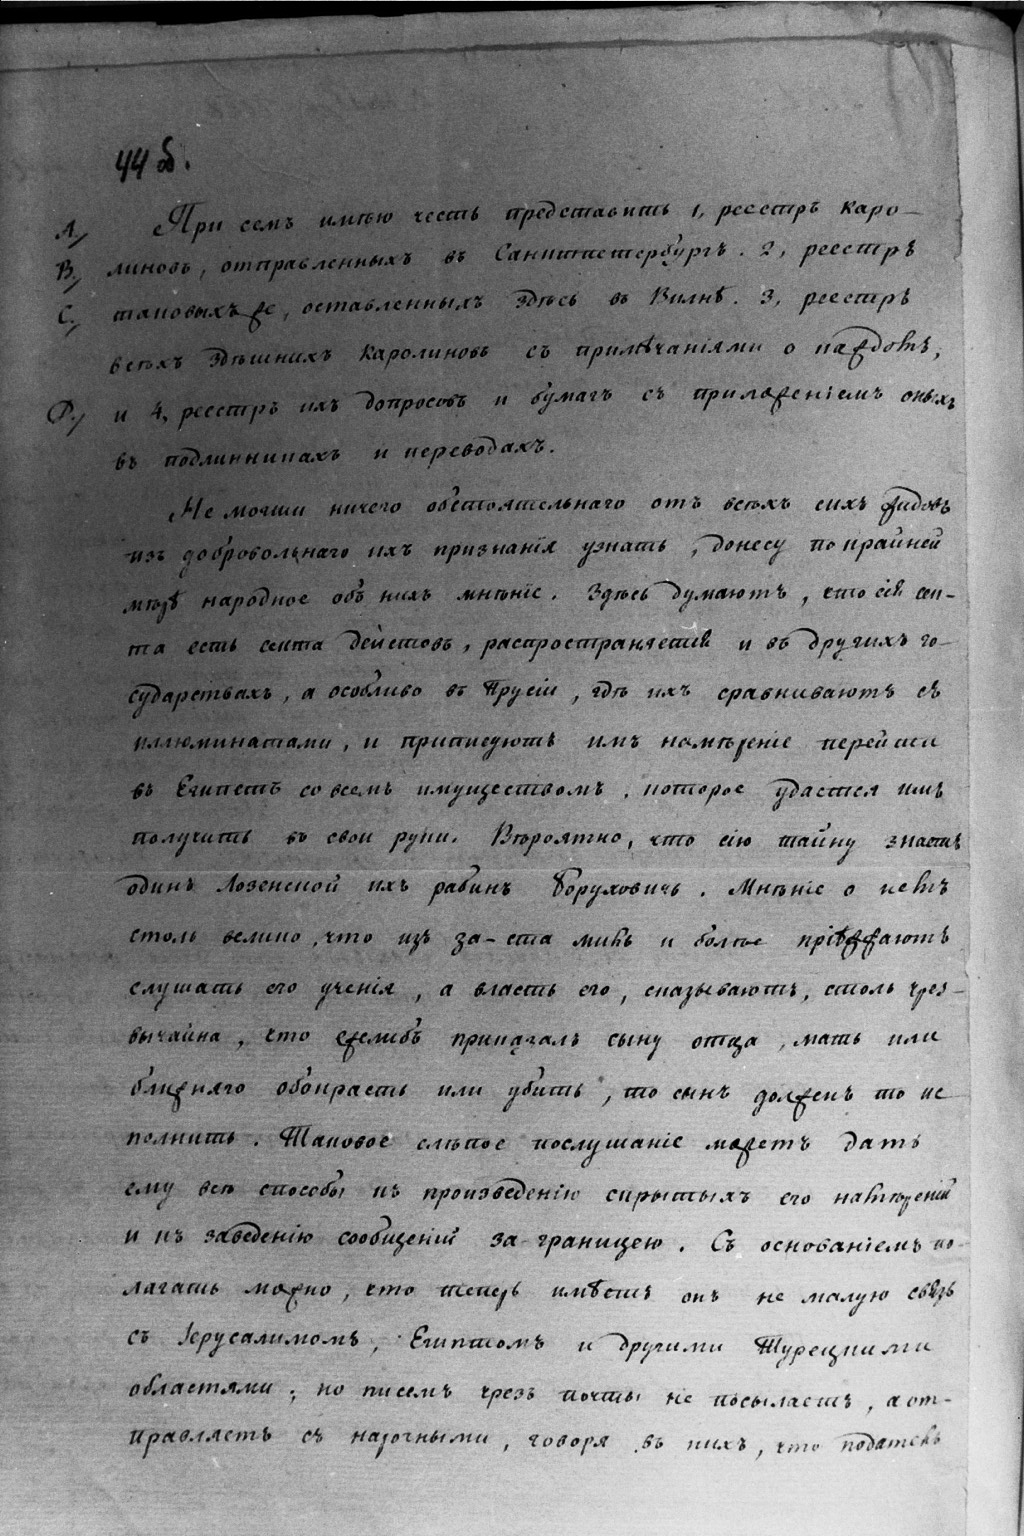 44 об.
А./ При семъ имѣю честь представить 1, реестръ каро-
В./ линовъ, отправленныхъ въ Санктпетербургъ. 2, реестръ
С./ таковыхъ же, оставленныхъ здѣсь въ Вилнѣ. 3, реестръ
всѣхъ здѣшнихъ каролиновъ съ примѣчаніями о каждомъ,
D./ и 4, реестръ ихъ допросовъ и бумагъ съ приложеніемъ оныхъ
въ подлинникахъ и переводахъ.
Не могши ничего обстоятельнаго отъ всѣхъ сихъ жидовъ
изъ добровольнаго ихъ признанія узнать, донесу по крайней
мѣрѣ народное объ нихъ мнѣніе. Здѣсь думаютъ, что сія сек-
та есть секта деистовъ, распространяется и въ другихъ го-
сударствахъ, а особливо въ Прусіи, гдѣ ихъ сравниваютъ съ
иллюминатами, и приписуютъ имъ намѣреніе перейти
въ Египетъ со всемъ имуществомъ, которое удастся имъ
получить въ свои руки. Вѣроятно, что сію тайну знаетъ
одинъ Лозенской ихъ рабинъ Боруховичь. Мнѣніе о немъ
столь велико, что изъ за-ста миль и болѣе пріѣзжаютъ
слушать его ученія, а власть его, сказываютъ, столь чрез-
вычайна, что ежелибъ приказалъ сыну отца, мать или
ближняго обокрасть или убить, то сынъ долженъ то ис
полнить. Таковое слѣпое послушаніе можетъ дать
ему всѣ способы къ произведенію скрытыхъ его намѣреній
и къ заведенію сообщеній за границею. Съ основаніемъ по-
лагать можно, что теперь имѣетъ онъ не малую связь
съ Іерусалимомъ, Египтомъ и другими Турецкими
областями; но писемъ чрезъ почты не посылаетъ, а от-
правляетъ съ нарочными, говоря въ нихъ, что податель